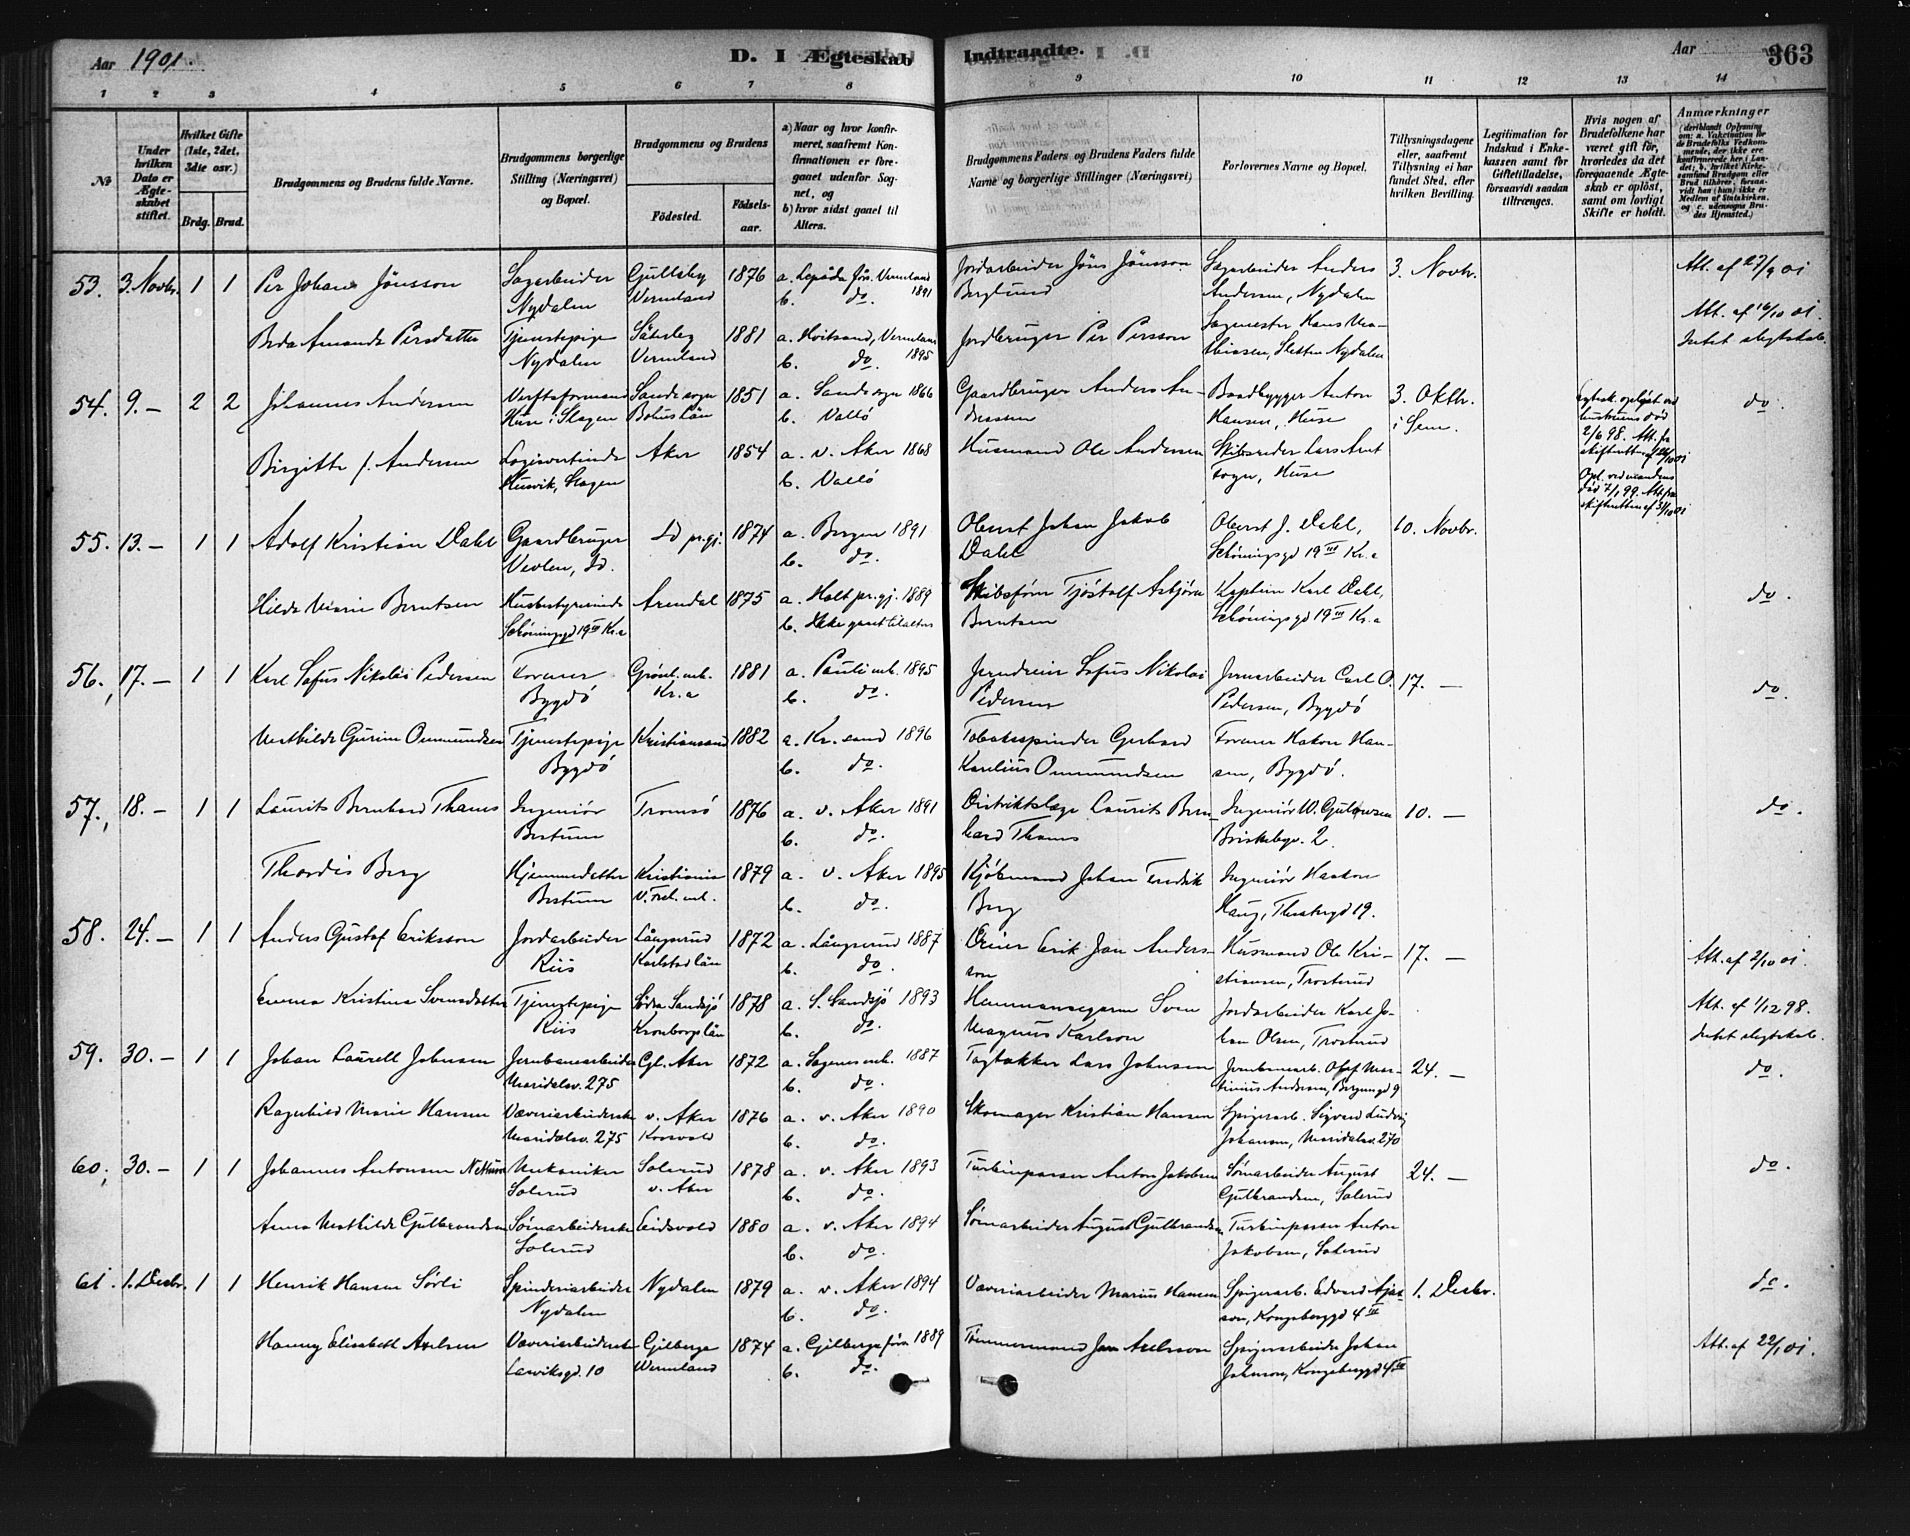 Aar 1901.
D. I Ægteskab Indtraadte.
Aar
363
1 2 3 4 5 6 7 8 9 10 11 12 13 14
№
Under hvilken Dato er Ægteskabet stiftet.
Hvilket Gifte (1ste, 2det, 3die osv.)
Brdg. Brud.
Brudgommens og Brudens fulde Navne.
Brudgommens borgerlige Stilling (Næringsvei) og Bopæl.
Brudgommens og Brudens
Födested.
Födselsaar.
a) Naar og hvor konfirmeret, saafremt Konfirmationen er foregaaet udenfor Sognet, og
b) hvor sidst gaaet til Alters.
Brudgommens Faders og Brudens Faders fulde Navne og borgerlige Stillinger (Næringsvei)
Forlovernes Navne og Bopæl.
Tillysningsdagene eller, saafremt Tillysning ei har fundet Sted, efter hvilken Bevilling.
Legitimation for Indskud i Enkekassen samt for Giftetilladelse, forsaavidt saadan tiltrænges.
Hvis nogen af Brudefolkene har været gift för, hvorledes da det foregaaende Ægteskab er oplöst, samt om lovligt Skifte er holdt.
Anmærkninger
53. 3. Novbr. 1 1 Per Johan Jönsson Sagarbeider Nydalen Gullsby Vermland 1876 a. Lysvik förs. Vermland 1891 b. do. Jordarbeider Jöns Jönsson Berglund Sagarbeider Anders Andersen, Nydalen 3. Novbr. Att. af 27/9 01
Beda Amanda Persdatter Tjenestepige Nydalen Säterby Vermland 1881 a. Hvitsand, Vermland 1895 b. do. Jordbruger Per Persson Sagmester Hans Mathiesen, Sletten Nydalen Att. af 16/10 01. Intet slegtskab.
54. 9. — 2 2 Johannes Andersen Verftsformand Huse i Slagen Sande sogn Bohuslän 1851 a. Sande sogn 1866 b. Vallö Gaardbruger Anders Andreassen Baadbygger Anton Hansen, Huse 3. Oktbr. i Sem. Egtesk. opløst ved hustruens død 2/6 98. Att. fra skifteretten af 26/10 01 do.
Birgitte f. Andersen Logisvertinde Husvik, Slagen Aker 1854 a. v. Aker 1868 b. Vallö Husmand Ole Andersen Skibsreder Lars Arnt, Huse Opl. ved mandens død 7/1 99. Att. fra skifteretten af 3/10 01
55. 13. — 1 1 Adolf Kristian Dahl Gaardbruger Id. Id pr.gj. 1874 a. Bergen 1891 b. do. Oberst Johan Jakob Dahl Oberst J. Dahl, Schöningsgd 19 III Kr.a 10. Novbr.
Hilda Marie Berntsen Husbestyrerinde Schöningsgd 19 III Kr.a Arendal 1875 a. Holt pr.gj. 1889 b. Ikke gaaet til alters Skibsfører Tjöstolf Asbjörn Berntsen Kaptein Karl Dahl, Schöningsgd 19 III Kr.a do.
56. 17. — 1 1 Karl Sofus Nikolai Pedersen Former Bygdö Grönl. mh. Kr.a 1881 a. Pauli mh. 1895 b. do. Jerndreier Sofus Nikolai Pedersen Jernarbeider Carl O. Pedersen, Bygdö 17. — do.
Mathilde Gurine Ommundsen Tjenestepige Bygdö Kristianssand 1882 a. Kr.sand 1896 b. do. Tobakspinder Gerhard Karelius Ommundsen Former Hakon Hansen, Bygdö.
57. 18. — 1 1 Laurits Bernhard Thams Ingeniör Bestum Tromsö 1876 a. v. Aker 1891 b. do. Distriktslæge Laurits Bernhard Thams Ingeniör W. Briskebyv. 2. 10. — do.
Thordis Berg Hjemmedatter Bestum Kristiania V. Frel. mh. 1879 a. v. Aker 1895 b. do. Kjöbmand Johan Fredrik Berg Ingeniör Haakon Haug, Theatergd 19.
58. 24. — 1 1 Anders Gustaf Eriksson Jordarbeider Riis Långserud Karlstad län 1872 a. Långserud 1887 b. do. Erik Jan Andersson Husmand Ole Kristiansen, Trosterud 17. — Att. af 2/10 01.
Emma Kristina Svensdatter Tjenestepige Riis Södra Sandsjö Kronborgs län 1878 a. S. Sandsjö 1893 b. do. Hemmansegaren Sven Magnus Karlson Jordarbeider Karl Johan Olsen, Trosterud Att. af 1/12 98. Intet slegtskab.
59. 30. — 1 1 Johan Laurell Johnsen Jernbanearbeider Maridalsv. 275 Gl. Aker 1872 a. Sagenes mh. 1887 b. do. Tagtækker Lars Johnsen Jernbanearb. Olaf Martinius Andersen, Bergensgd 9 24. — do.
Ragnhild Marie Hansen Væveriarbeiderske Maridalsv. 275 v. Aker Korsvold 1876 a. v. Aker 1890 b. do. Skomager Kristian Hansen Spigerarb. Sigvard Ludvig Johansen, Maridalsv. 270
60. 30. — 1 1 Johannes Antonsen Mekaniker Solerud Solerud v. Aker 1878 a. v. Aker 1893 b. do. Turbinpasser Anton Jakobsen Sömarbeider August Gulbrandsen, Solerud 24. — do.
Anna Mathilde Gulbrandsen Sömarbeiderske Solerud Eidsvold 1880 a. v. Aker 1894 b. do. Sömarbeider August Gulbrandsen Turbinpasser Anton Jakobsen, Solerud
61. 1. Desbr. 1 1 Henrik Hansen Sörli Spinderiarbeider Nydalen Nydalen 1879 a. v. Aker 1894 b. do. Væveriarbeider Marius Hansen Spigerarb. Edvard, Kongsberggd 4 III 1. Desbr. do.
Hanny Elisabeth Axelsen Væveriarbeiderske Larviksgd. 10 Gilberga Wermland 1874 a. Gilberga förs 1889 b. do. Tömmermand Jan Axelsson Spigerarbeider Johan Johnson, Kongsberggd 4 III Att. af 22/1 01.